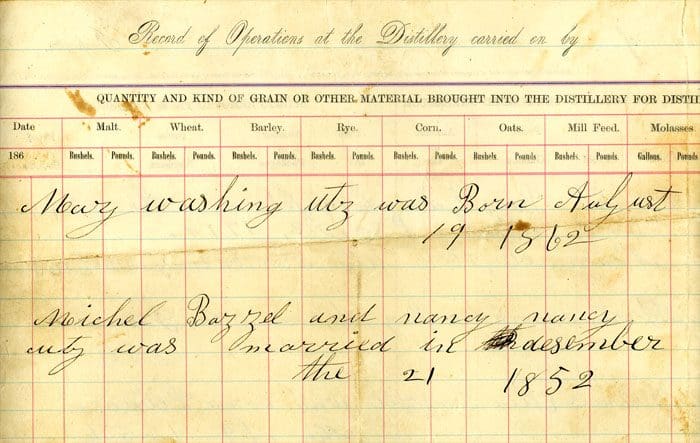 Record of Operations at the Distillery carried on by
QUANTITY AND KIND OF GRAIN OR OTHER MATERIAL BROUGHT INTO THE DISTILLERY FOR DISTI
Date Malt. Wheat. Barley. Rye. Corn. Oats. Mill Feed. Molasses
186 Bushels. Pounds. Bushels. Pounds. Bushels. Pounds. Bushels. Pounds. Bushels. Pounds. Bushels. Pounds. Bushels. Pounds. Gallons. Pounds
Mary washing utz was Born August
19 1862
Michel Bazzel and nancy nancy
utz was married in desember
the 21 1852